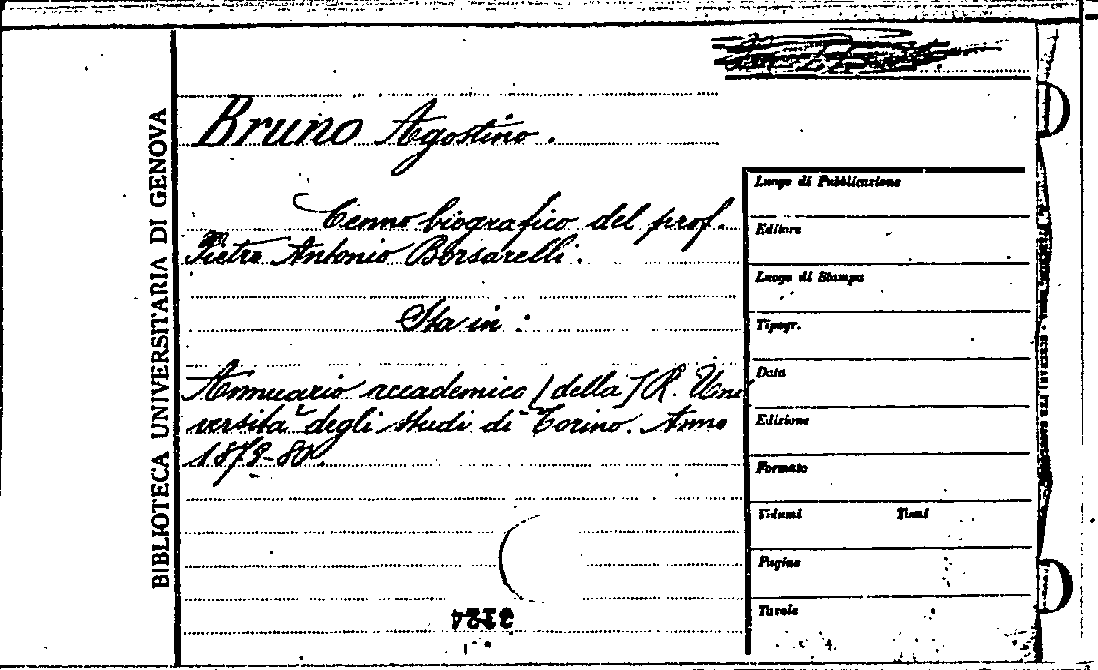 BIBLIOTECA UNIVERSITARIA DI GENOVA
Bruno Agostino.
Cenno biografico del prof.
Pietro Antonio Borsarelli.
Sta in:
Annuario accademico [della] R. Uni
versità degli studi di Torino. Anno
1879-80.
Luogo di Pubblicazione
Editore
Luogo di Stampa
Tipogr.
Data
Edizione
Formato
Volumi Tomi
Pagine
Tavole
3124